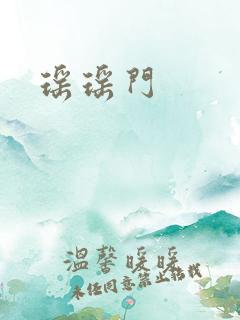 瑶瑶門
溫馨暖暖
未经同意禁止转载